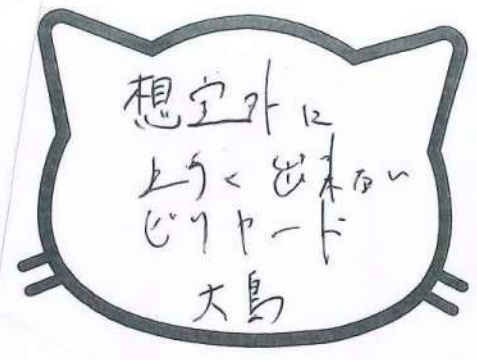 想定外に
上手く出来ない
ビリヤード
大島